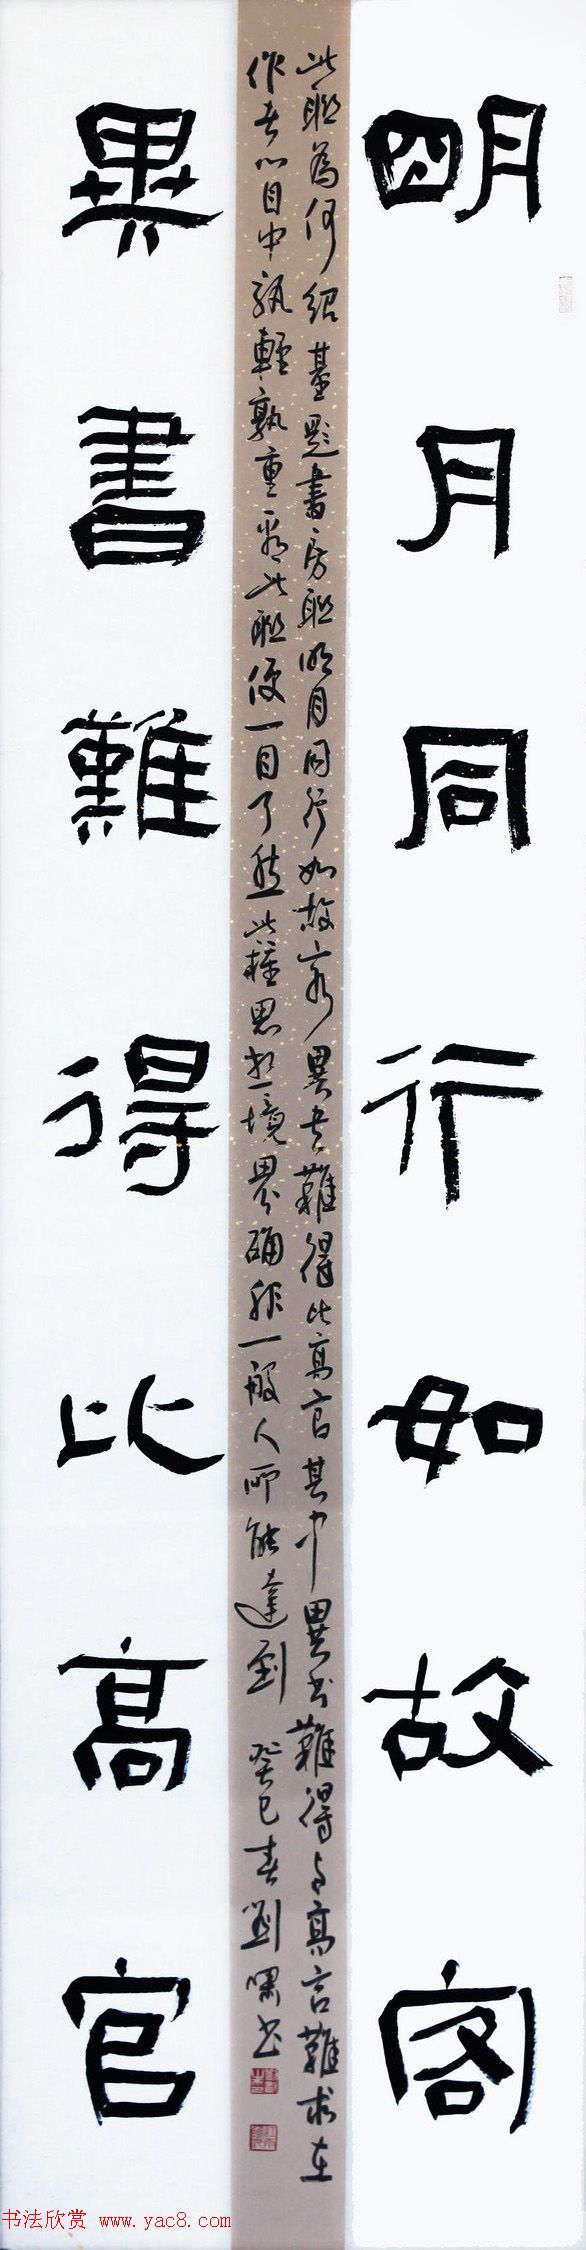 明月同行如故客
此联為何绍基题書房联明月同行如故客異書難得比高官其中異书難得与高官難求在
作者心目中孰輕孰重看此联便一目了然此種思想境界确非一般人所能達到 癸巳春劉啸书
異書難得比高官
书法欣赏 www.yac8.com